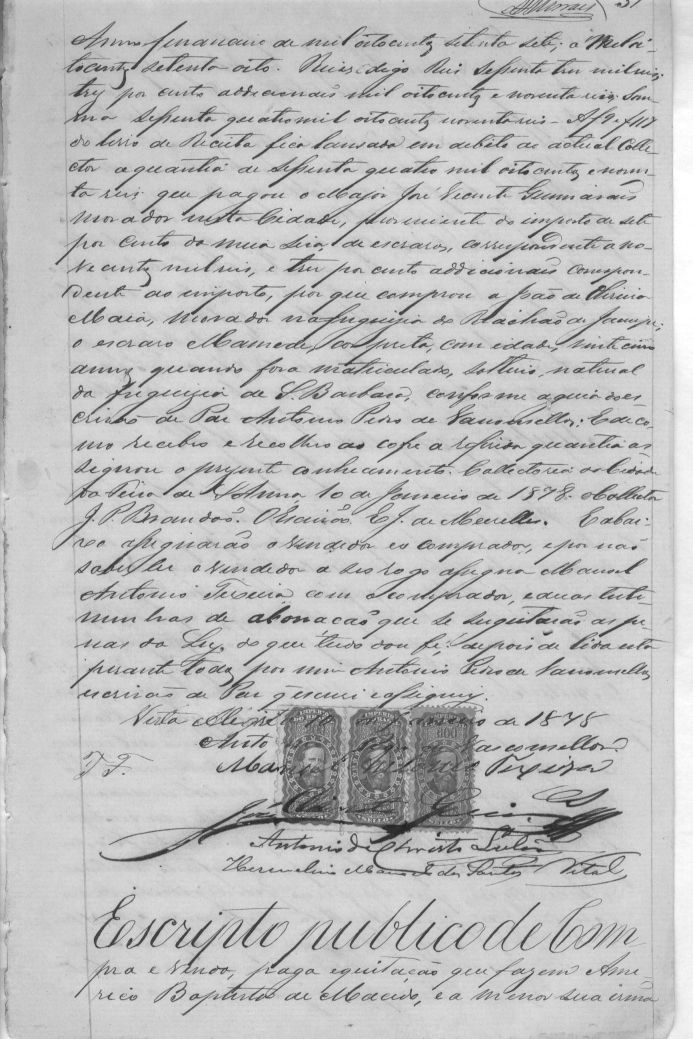 Anno financeiro de mil oitocentz setenta sete, a mil oi-
tocentz setenta oito. Reis, digo Reis sessenta tres mil reis,
trez por cento addicionais mil oitocentz e noventa reis. Som-
ma sessenta quatro mil oitocentz noventa reis. Af 9 f 117
do livro de Receita fica lançada em debito ao actual Colle-
ctor a quantia de sessenta quatro mil oitocentz e noven-
ta reis que pagou o Major José Vicente Guimarais
morador nesta Cidade, proveniente do imposto de sete
por cento da meia siza de escravos, correspondente a no-
ve centz mil reis, e tres por cento addicionais correspon-
dente ao imposto, por que comprou a João de Oliveira
Maia, morador na freguezia do Riachão de Jacuipe,
o escravo Mamede, cor preta, com idade, vinte cinco
annos quando fora matriculado, solteiro, natural
da freguezia de S. Barbara, conforme a guia do es-
crivão de Paz Antonio Pedro de Vasconsellos; E de co-
mo recebeo e recolheo ao cofre a referida quantia as-
signou o prezente conhecimento. Collectoria da Cidade
da Feira de Sant'Anna 10 de Janeiro de 1878. O Collector
J. P. Brandão. O Escrivão E. J. de Meirelles. E abai-
xo assignarão o vendedor e o comprador, e por não
saber ler o vendedor a seo rogo assigna Manoel
Antonio Teixeira com o comprador, e duas teste-
munhas de abonacão que se sugeitarão as pe-
nas da Ley, do que tudo dou fé, depois de lida esta
perante todos, por mim Antonio Pedro de Vasconsellos,
escrivão de Paz q escrevi e assignei.
10 de Janeiro de 1878
Antonio Pedro de Vasconsellos
Manoel Antonio Teixeira
José Vicente Guimarães
Antonio de Christo
Manoel dos Santos Vital
Escripto publico de Com
pra e venda, paga e quitação que fazem Ame-
rico Baptista de Macedo, e a menor sua irmã